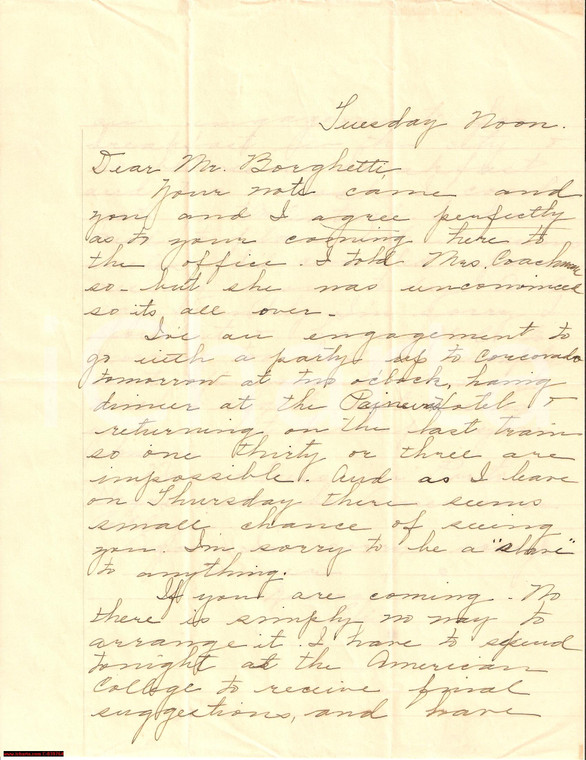 Tuesday Noon.
Dear Mr. Borghetti,
Your note came and
you and I agree perfectly
as to your coming here to
the office. I told Mrs. Coachman
so - but she was unconvinced
so its all over -
I've an engagement to
go with a party up to Corcovado
tomorrow at two o'clock, having
dinner at the Paineiras Hotel &
returning on the last train
so one thirty or three are
impossible. And as I leave
on Thursday there seems
small chance of seeing
you. I'm sorry to be a "slave"
to anything.
If you are coming - No
there is simply no way to
arrange it. I have to spend
tonight at the American
College to receive final
suggestions, and have